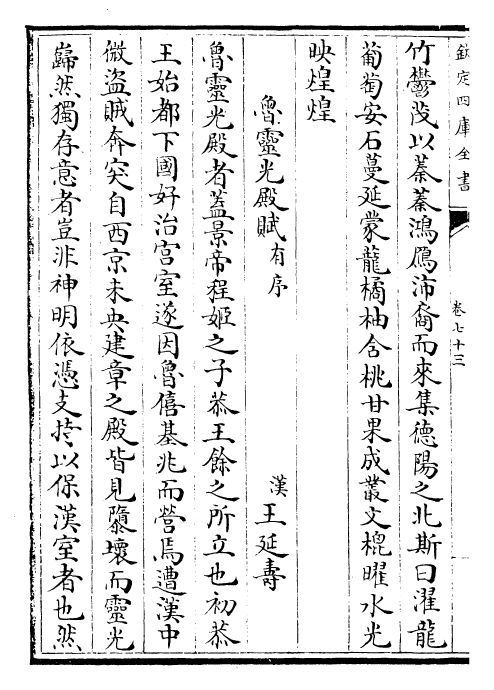 欽定四庫全書
卷七十三
竹鬱茂以蓁蓁鴻鴈沛裔而來集德陽之北斯曰濯龍
葡萄安石蔓延蒙籠橘柚含桃甘果成叢文楒曜水光
映煌煌
魯靈光殿賦有序
漢王延壽
魯靈光殿者葢景帝程姬之子恭王餘之所立也初恭
王始都下國好治宫室遂因魯僖基兆而營焉遭漢中
微盜賊奔突自西京未央建章之殿皆見隳壞而靈光
巋然獨存意者豈非神明依憑支持以保漢室者也然